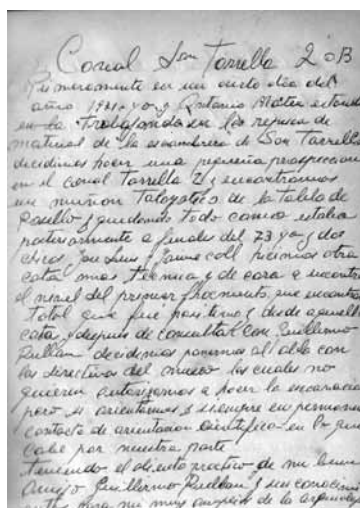 Corral Son Torrella 2 o B
Primeramente en un cierto día del
año 1971 yo y Antonio Mateu estando
en la trabajando en los repasa de
material de la escombrera de Son Torrella
decidimos hacer una pequeña prospeccion
en el corral Torrella 2 y encontramos
un muñon Talayotico de la tablila de
Rosello y quedando todo como estaba
posteriormente a finales del 73 yo y dos
chicos Jose Luis y Jaume Coll hicimos otra
cata mas tecnica y de cara a encontra
el nivel del primer fragmento, que encontra
total que fue positivo y desde aquella
cata y despues de consultar con Guillermo
Rullan decidimos ponernos al habla con
los directivos del museo los cuales no
quieren autorizarnos a hacer la excavacion
pero si orientarnos y siempre en permane
contacto de orientacion cientifica en lo que
cabe por nuestra parte
Teniendo el directo de mi buen
amigo Guillermo Rullan y sus conocimi
para mi muy de la arqueologi